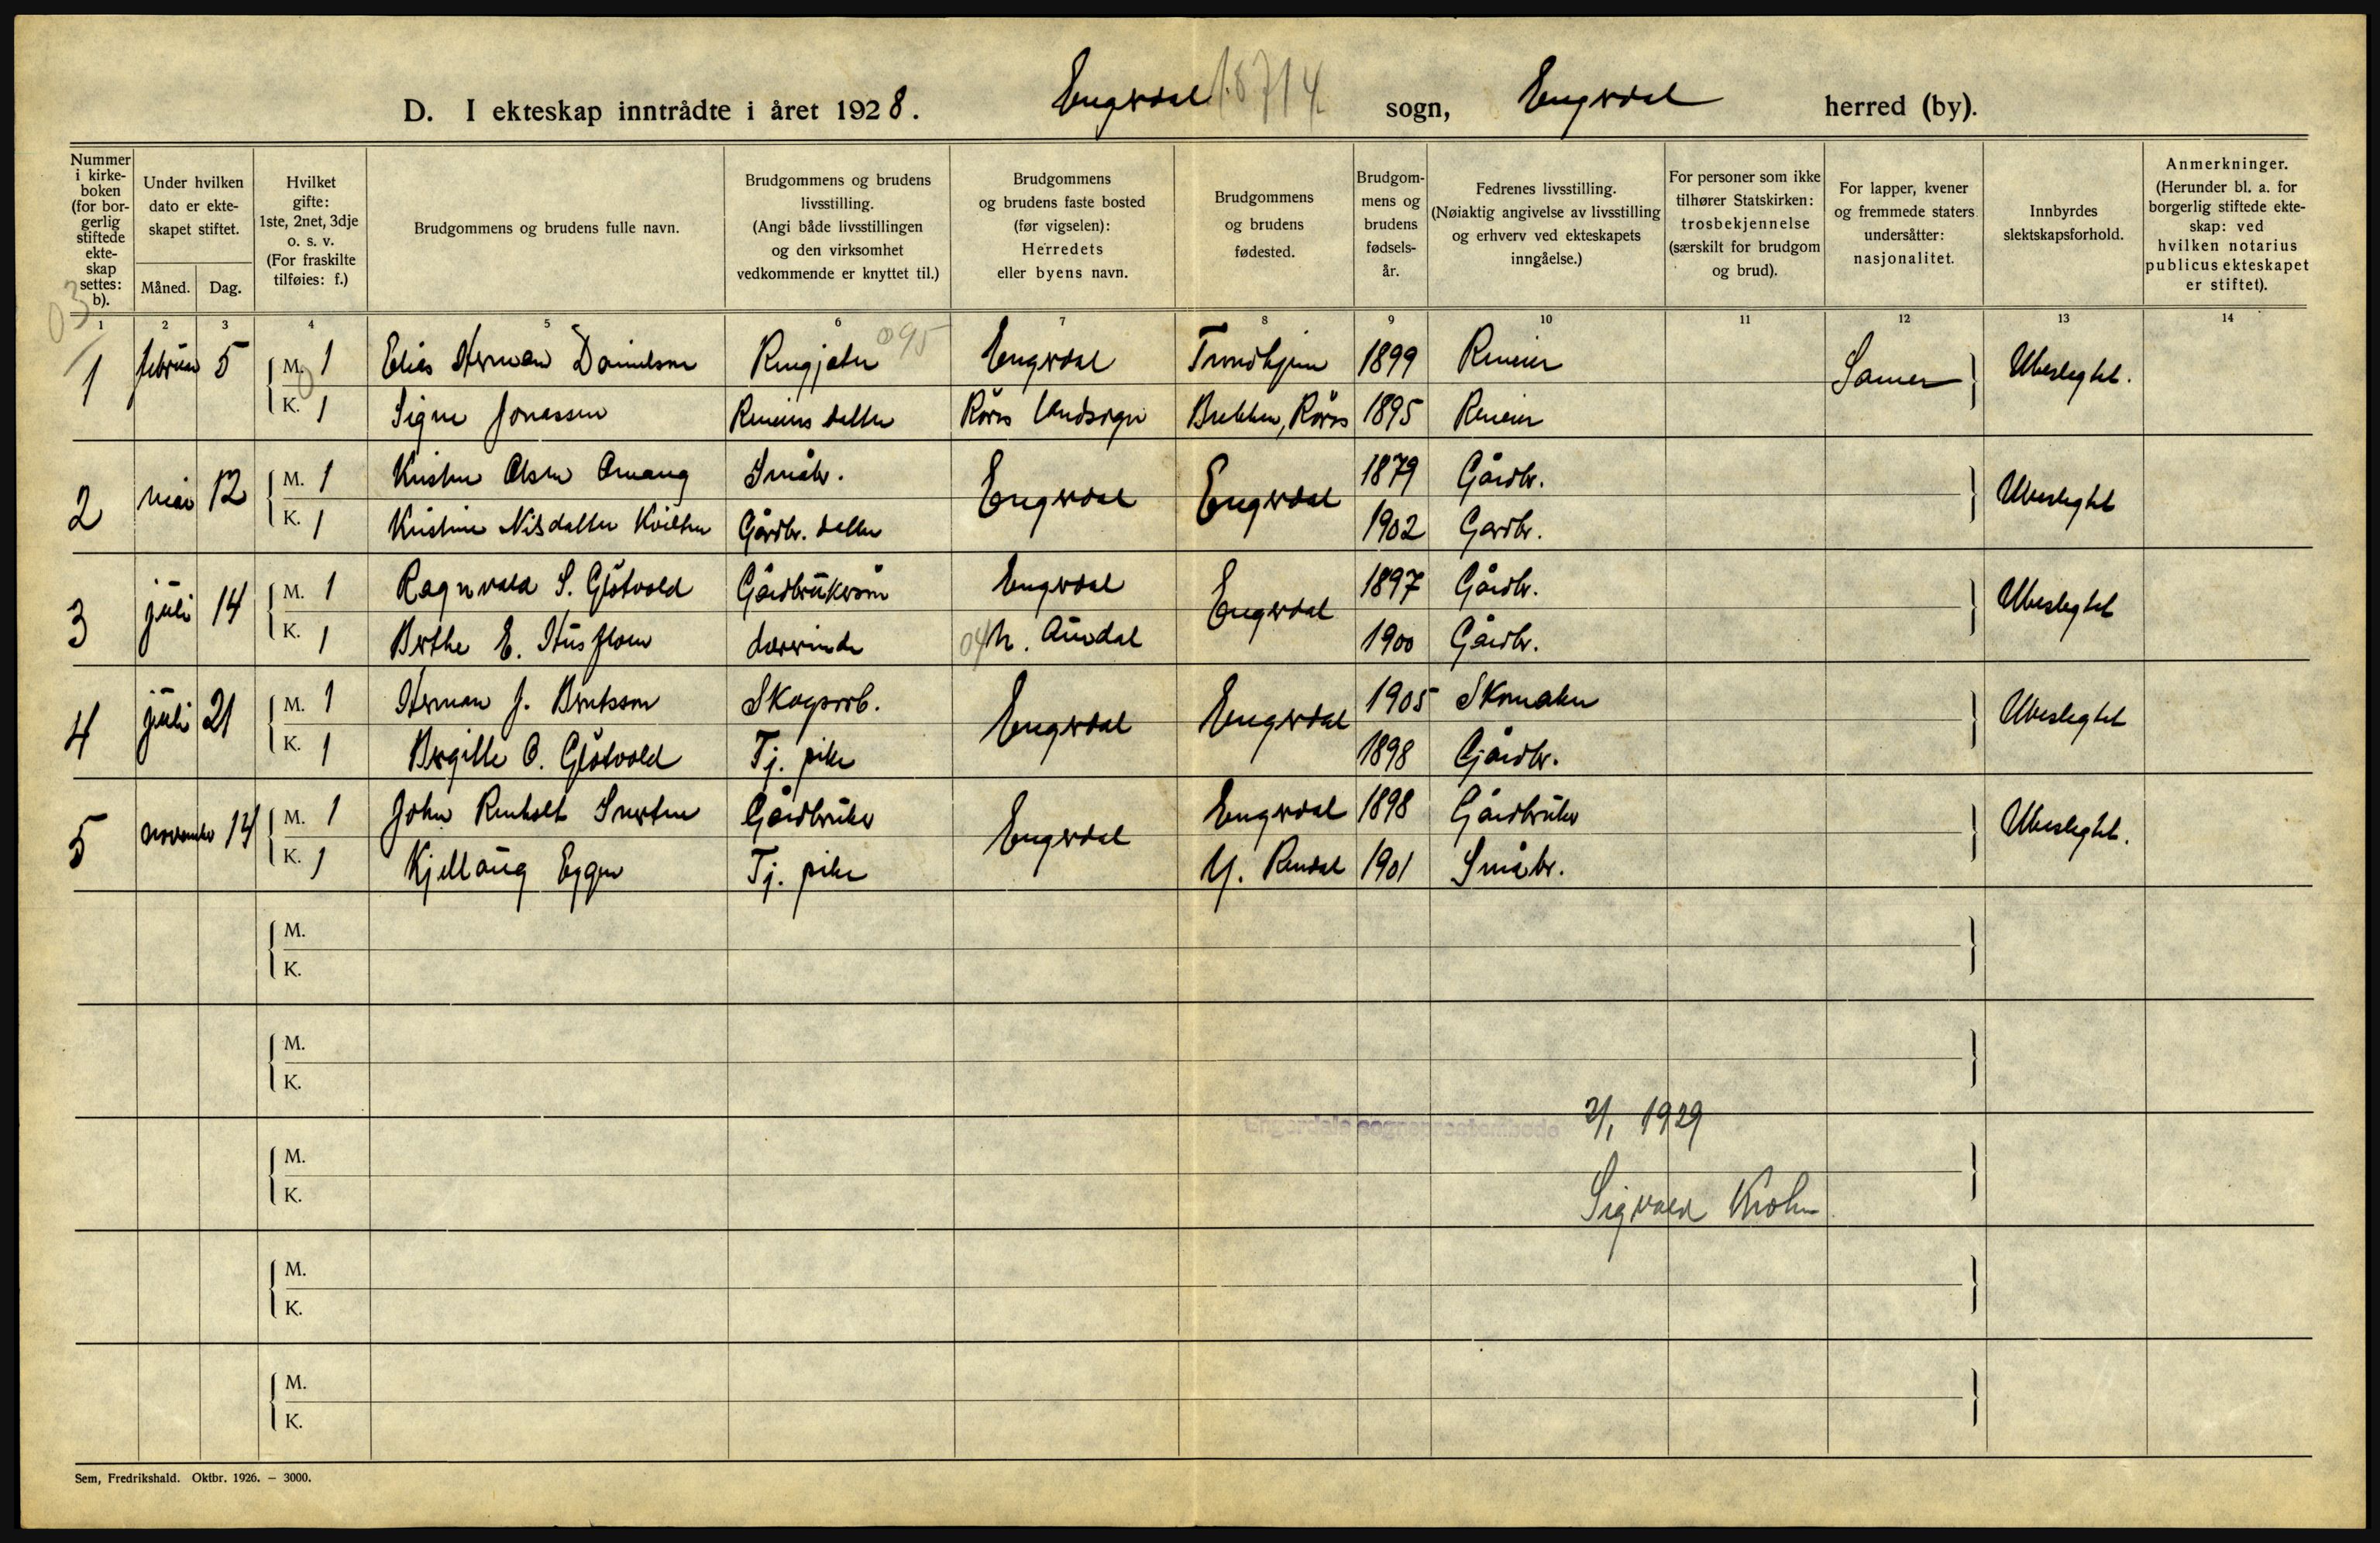 D. I ekteskap inntrådte i året 1928. Engerdal sogn, Engerdal herred (by).
Nummer i kirkeboken (for borgerlig stiftede ekteskap settes: b).
Under hvilken dato er ekteskapet stiftet.
Måned. Dag.
Hvilket gifte: 1ste, 2net, 3dje o. s. v. (For fraskilte tilføies: f.)
Brudgommens og brudens fulle navn.
Brudgommens og brudens livsstilling. (Angi både livsstillingen og den virksomhet vedkommende er knyttet til.)
Brudgommens og brudens faste bosted (før vigselen): Herredets eller byens navn.
Brudgommens og brudens fødested.
Brudgommens og brudens fødselsår.
Fedrenes livsstilling. (Nøiaktig angivelse av livsstilling og erhverv ved ekteskapets inngåelse.)
For personer som ikke tilhører Statskirken: trosbekjennelse (særskilt for brudgom og brud).
For lapper, kvener og fremmede staters undersåtter: nasjonalitet.
Innbyrdes slektskapsforhold.
Anmerkninger. (Herunder bl. a. for borgerlig stiftede ekteskap: ved hvilken notarius publicus ekteskapet er stiftet).
03
1 2 3 4 5 6 7 8 9 10 11 12 13 14
095
1 februar 5 M. 1 Elias Herman Danielsen Rengjeter Engerdal Trondhjem 1899 Reneier Samer Ubeslegtet.
K. 1 Signe Jonassen Reneiers datter Røros landsogn Brekken, Røros 1895 Reneier
2 mai 12 M. 1 Kristen Olsen Omang Småbr. Engerdal Engerdal 1879 Gårdbr. Ubeslegtet
K. 1 Kristine Nilsdatter Kvilten Gårdbr. datter 1902 Gardbr.
3 juli 14 M. 1 Ragnvald S. Gløtvold Gårdbrukersøn Engerdal Engerdal 1897 Gårdbr. Ubeslegtet
K. 1 Berthe E. Husfloen Lærerinde 04 N. Aurdal 1900 Gårdbr.
4 juli 21 M. 1 Herman J. Berntsson Skogsarb. Engerdal Engerdal 1905 Skomaker Ubeslegtet
K. 1 Bergitte O. Gløtvold Tj. pike 1898 Gjårdbr.
5 november 14 M. 1 John Renholt Snerten Gårdbruker Engerdal Engerdal 1898 Gårdbruker Ubeslegtet.
K. 1 Kjellaug Eggen Tj. pike Y. Rendal 1901 Småbr.
M.
K.
M.
K.
2/1 1929
M.
K.
Sigvald Krohn
M.
K.
M.
K.
Sem, Fredrikshald. Oktbr. 1926. — 3000.